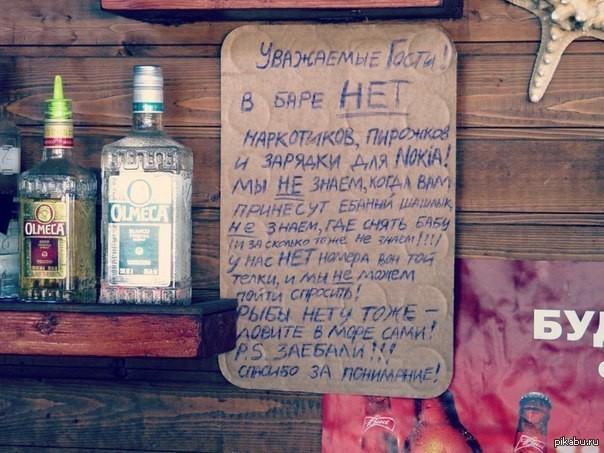 Уважаемые Гости!
В БАРЕ НЕТ
НАРКОТИКОВ, ПИРОЖКОВ
И ЗАРЯДКИ ДЛЯ NOKIA!
МЫ НЕ ЗНАЕМ, КОГДА ВАМ
ПРИНЕСУТ ЕБАНЫЙ ШАШЛЫК,
НЕ ЗНАЕМ, ГДЕ СНЯТЬ БАБУ
(И ЗА СКОЛЬКО ТОЖЕ НЕ ЗНАЕМ)!!!!
У НАС НЕТ НОМЕРА ВОН ТОЙ
ТЕЛКИ, И МЫ НЕ МОЖЕМ
ПОЙТИ СПРОСИТЬ!
РЫБЫ НЕТУ ТОЖЕ –
ЛОВИТЕ В МОРЕ САМИ!
P.S. ЗАЕБАЛИ!!!
СПАСИБО ЗА ПОНИМАНИЕ!
OLMECA
OLMECA
BLANCO
БУД
pikabu.ru